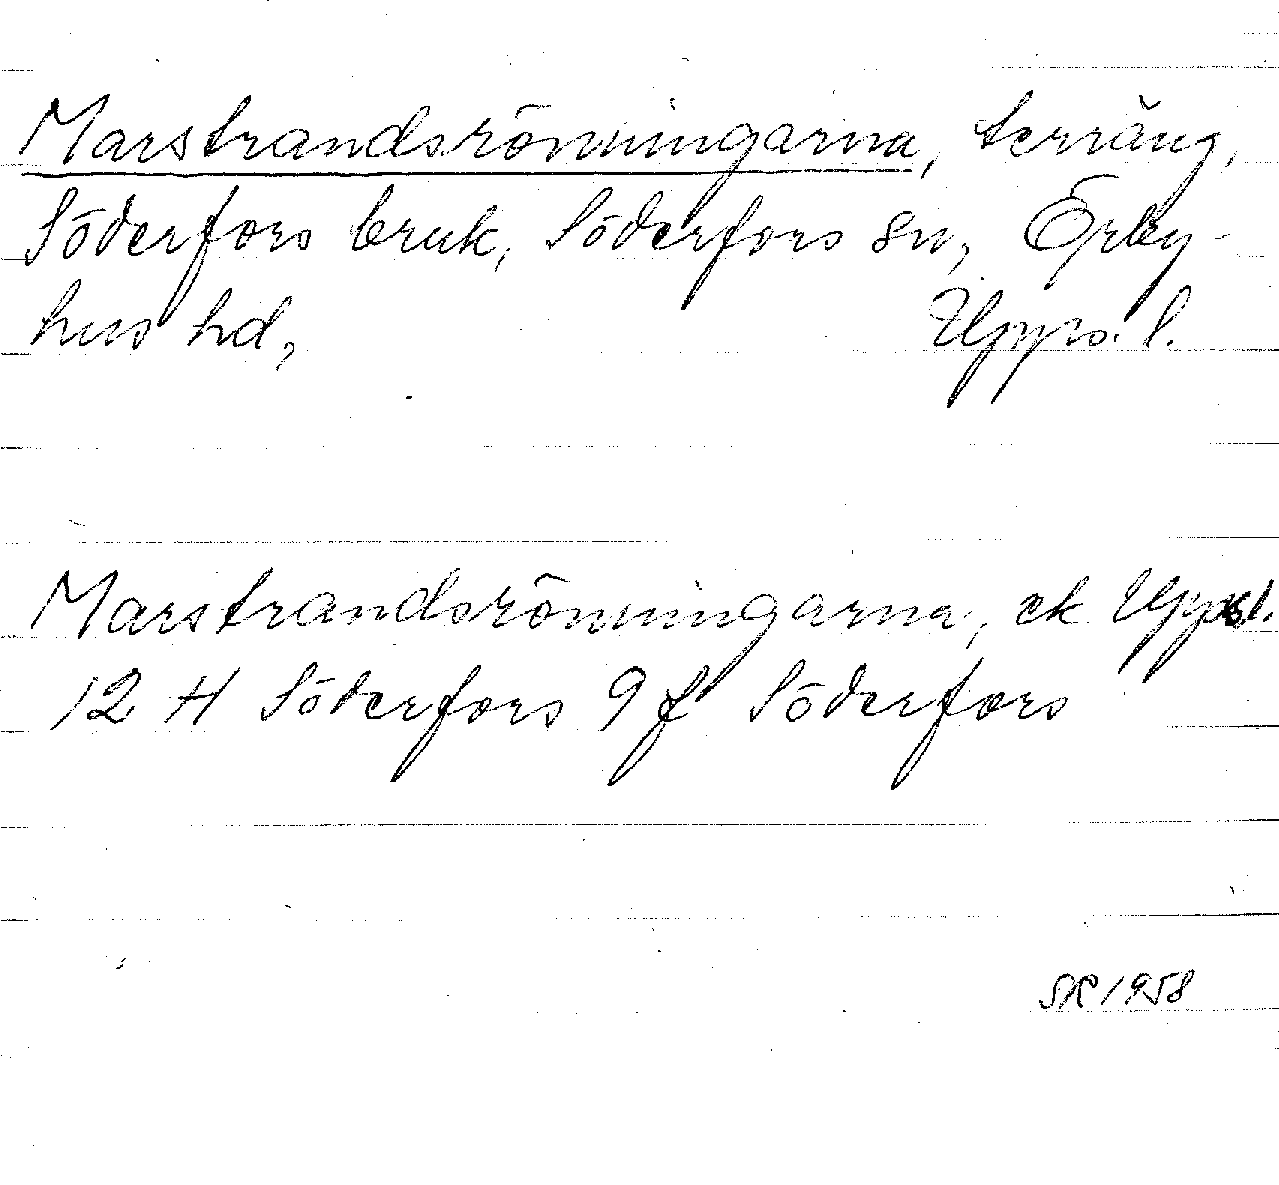 Marstrandsrönningarna, terräng,
Söderfors bruk, Söderfors sn, Örby-
hus hd, Upps. l.
Marstrandsrönningarna, ek Upps l.
12 H Söderfors 9 f Söderfors
1958